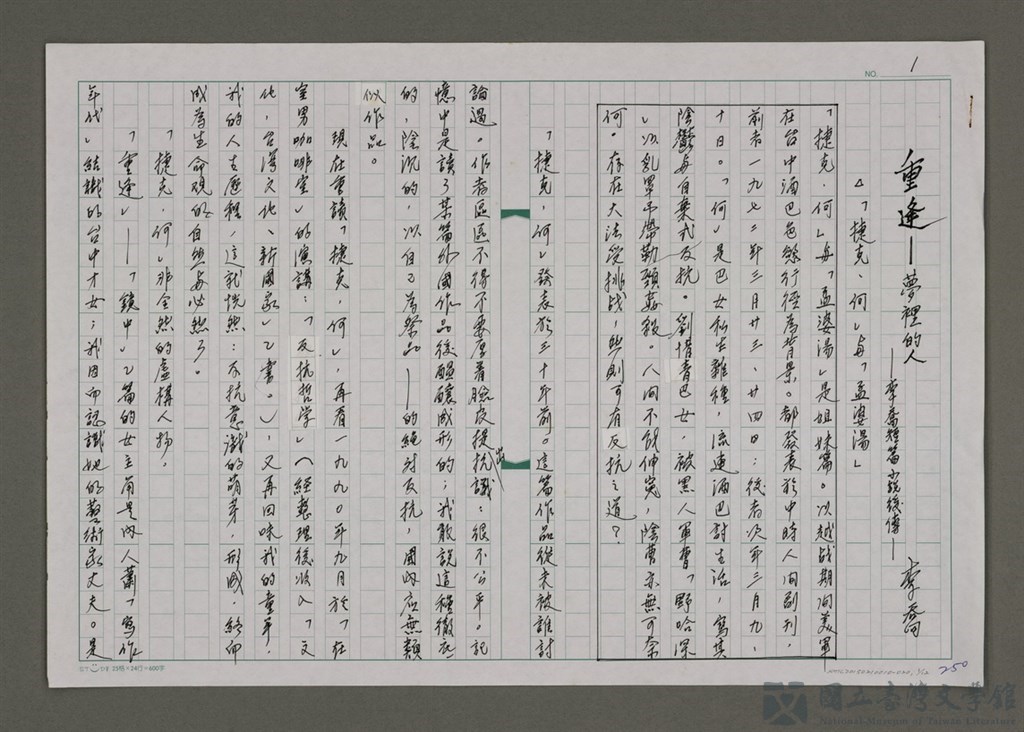 NO. 1
重逢——夢裡的人
——李喬短篇小說後傳——
李喬
△「捷克、何」與「孟婆湯」
「捷克.何」與「孟婆湯」是姐妹篇。以越戰期間美軍
在台中酒巴色餘行徑為背景。都發表於中時人間副刊，
前者一九七二年三月廿三、廿四日；後者次年三月九、
十日。「何」是巴女私生雜種，流連酒巴討生活，寫其
陰鬱與自棄式反抗。劉惜青巴女，被黑人軍曹「野哈深
」以乳罩吊帶勒頸姦殺。人间不能伸冤，陰曹亦無可奈
何。存在大法受挑战，與則可有反抗之道？
「捷克，何」發表於三十年前。這篇作品從未被誰討
論過。作者區區不得不要厚着臉皮提抗議：很不公平。記
憶中是讀了某篇外國作品後醞釀成形的；我敢說這種徹底
的，陰沉的，以自己為祭品——的絕对反抗，國內应無類
似作品。
現在重讀「捷克，何」，再看一九九０年九月於「在
室男咖啡室」的演講：「反抗哲学」（經整理後收入「文
化，台灣文化、新國家」乙書。），又再回味我的童年，
我的人生歷程，這就恍然：反抗意識的萌芽，形成，終而
成為生命观的自然與必然了。
「捷克.何」非全然的虛構人物。
「重逢」——「鏡中」乙篇的女主角是內人蕭「寫作
年代」結識的台中才女；我因而認識她的藝術家丈夫。是
23行×24行=600字
250
國立臺灣文學館
National Museum of Taiwan Literature